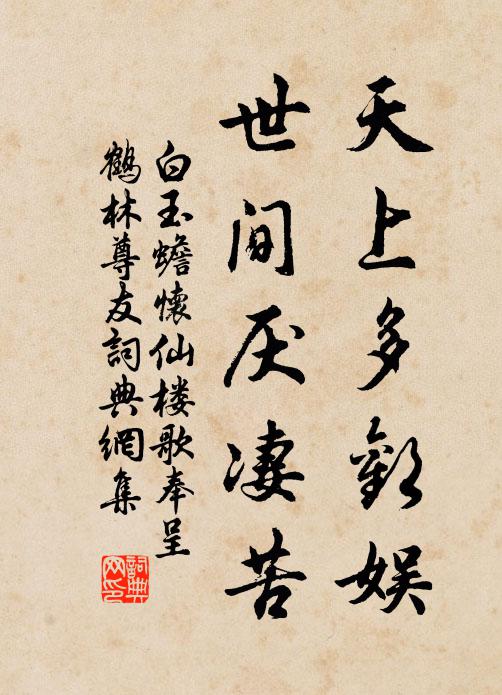 天上多歡娱
世间厌凄苦
白玉蟾懷仙楼歌奉呈
鹤林尊友詞典網集
詞典
网印